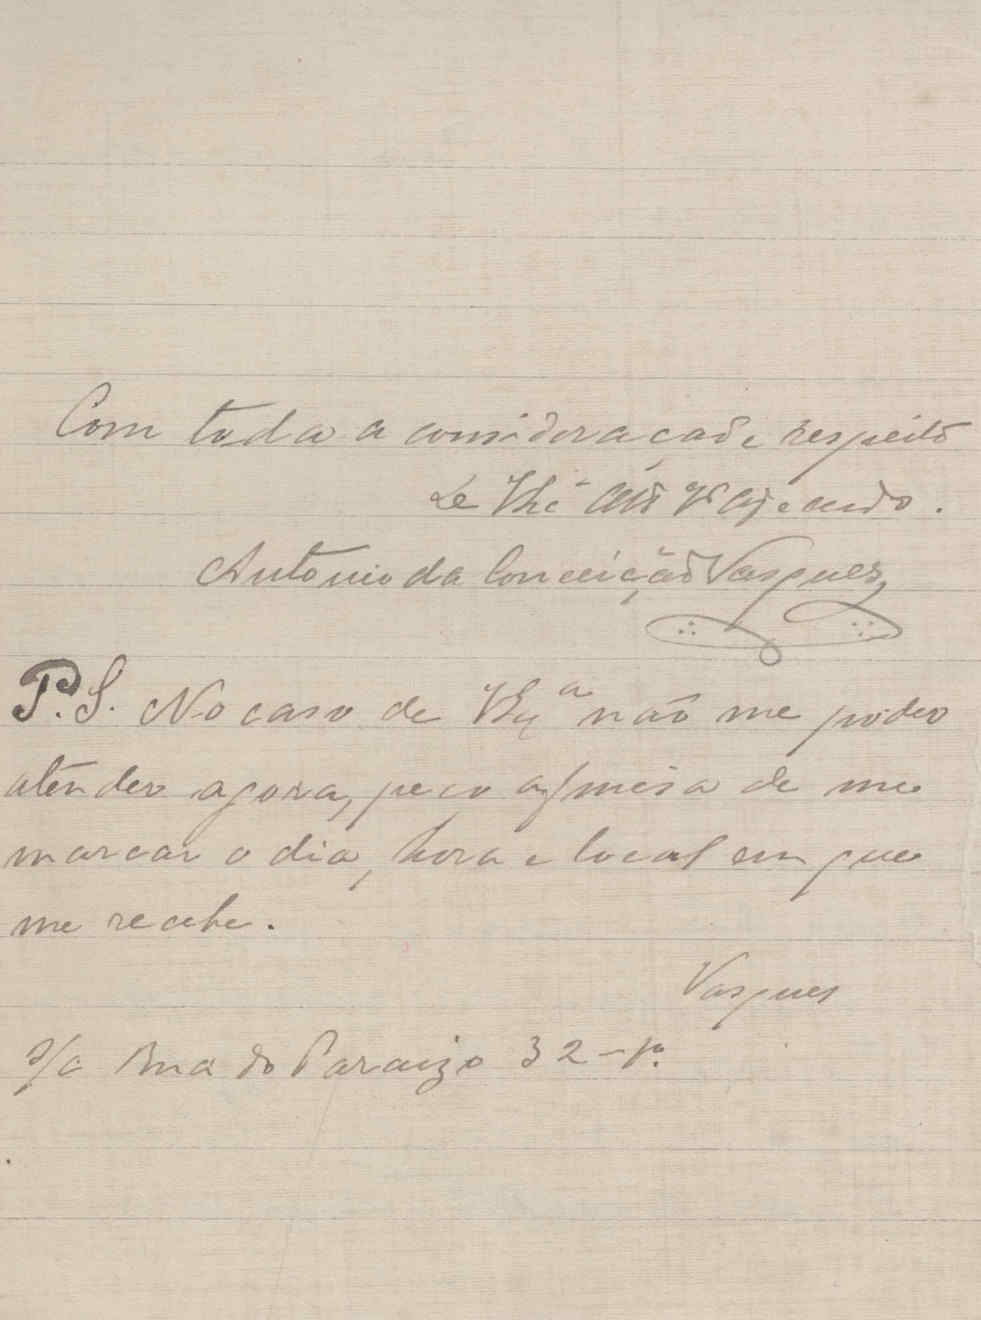 Com toda a consideração e respeito
De
Antonio da Conceição Vasques
P.S. No caso de V. Ex.ª não me poder
atender agora, peço a fineza de me
marcar o dia, hora e local em que
me recebe.
Vasques
S/c Rua do Paraizo 32-1º.